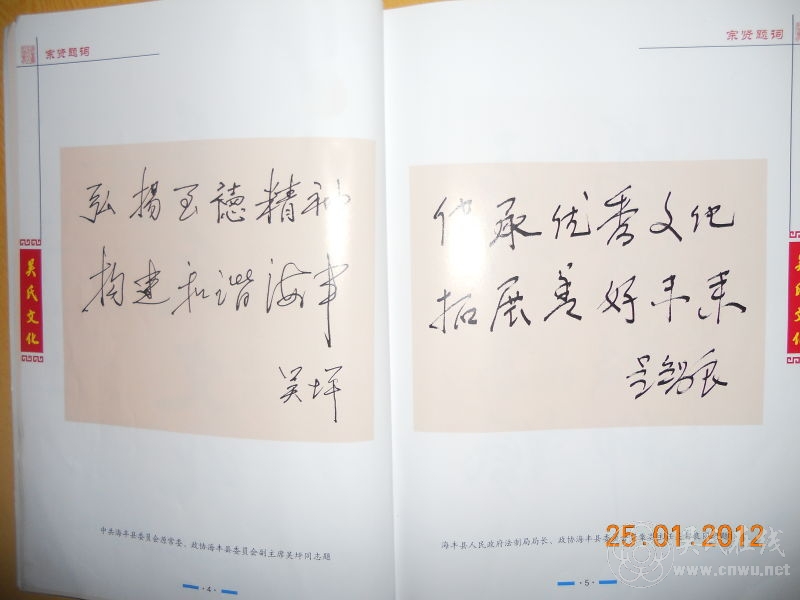 宗贤题词
吴氏文化
弘扬至德精神
构建和谐海丰
吴坪
中共海丰县委员会原常委、政协海丰县委员会副主席吴坪同志题
·4·
宗贤题词
吴氏文化
传承优秀文化
拓展美好未来
海丰县人民政府法制局局长、政协海丰县
·5·
25.01.2012
吴氏在线
www.cnwu.net